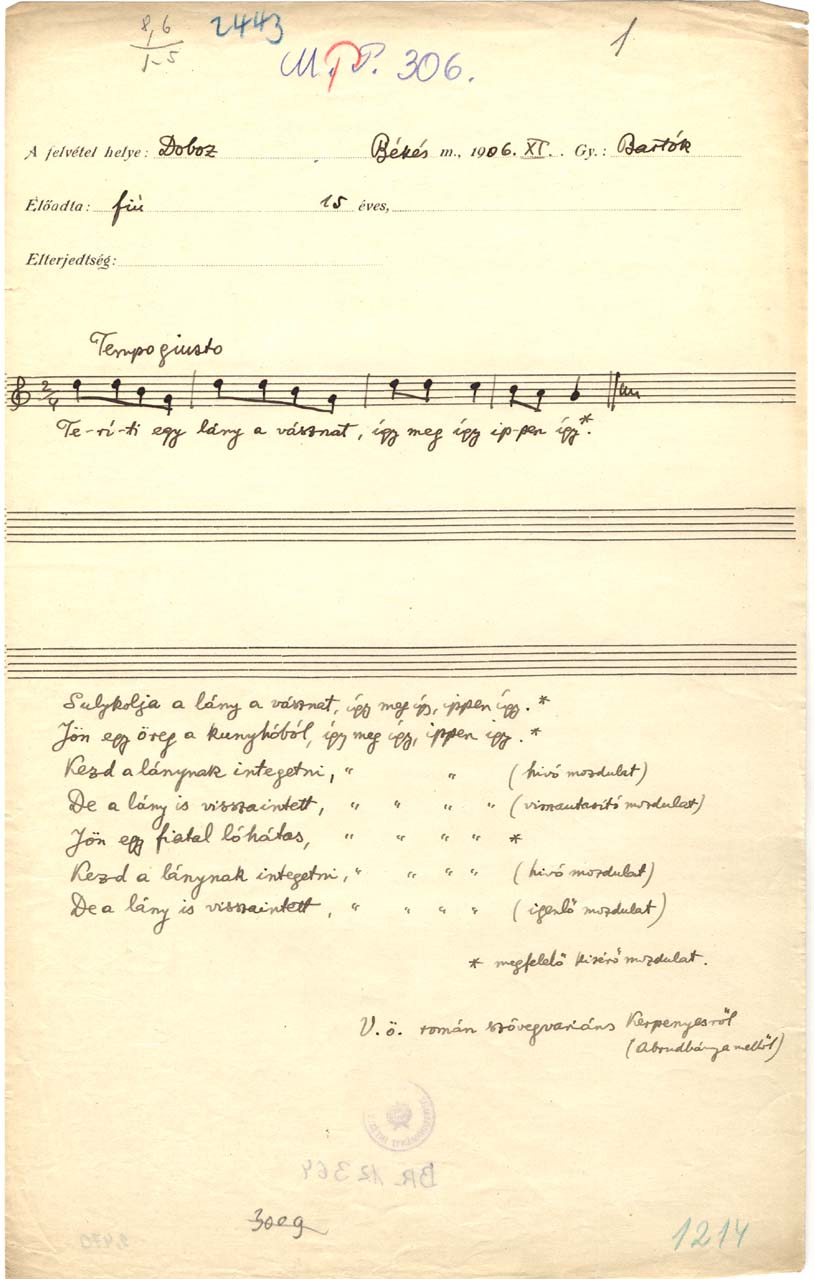 8,6
1-5
2443
1
M.P.P. 306.
A felvétel helye: Doboz Békés m., 1906. XI. Gy.: Bartók
Előadta: fiú 15 éves,
Elterjedtség:
Tempo giusto
2/4
Te-rí-ti egy lány a vásznat, így meg így ip-pen így*.
Sulykolja a lány a vásznat, így meg így, ippen így. *
Jön egy öreg a kunyhóból, így meg így, ippen igy. *
Kezd a lánynak integetni, " " (hivó mozdulat)
De a lány is visszaintett, " " " " (visszautasító mozdulat)
Jön egy fiatal lóhátas, " " " " *
Kezd a lánynak integetni, " " " " (hivó mozdulat)
De a lány is visszaintett, " " " " (igenlő mozdulat)
* megfelelő kisérő mozdulat.
V. ö. román szövegvariáns Kerpenyesről
(Abrudbánya mellől)
BR 12364
1214
2470